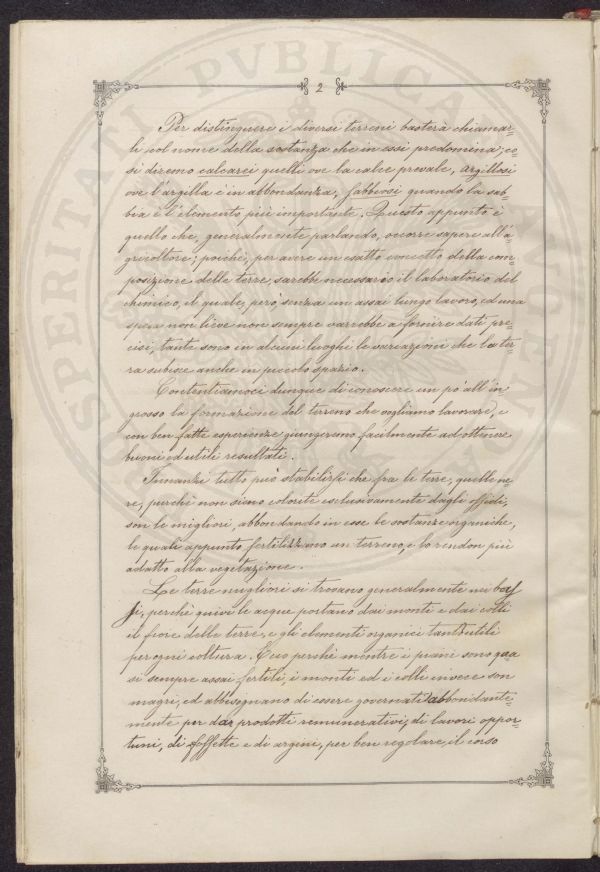 2
Per distinguere i diversi terreni basterà chiamar=
le col nome della sostanza che in essi predomina; co=
si diremo calcarei quelli ove la calce prevale, argillosi
ove l'argilla è in abbondanza, sabbiosi quando la sab=
bia è l'elemento più importante. Questo appunto è
quello che, generalmente parlando, occorre sapere all'a=
gricoltore; poichè, per avere un esatto concetto della com=
posizione delle terre, sarebbe necessario il laboratorio del
chimico, il quale, però, senza un assai lungo lavoro, ed una
spesa non lieve non sempre varrebbe a fornire dati pre=
cisi, tante sono in alcuni luoghi le variazioni che la ter=
ra subisce anche in piccolo spazio.
Contentiamoci dunque di conoscere un pò all'in=
grosso la formazione del terreno che vogliamo lavorare, e
con ben fatte esperienze giungeremo facilmente ad ottenere
buoni ed utili resultati.
Innanzi tutto può stabilirsi che, fra le terre, quelle ne=
re, purchè non siano colorite esclusivamente dagli ossidi,
son le migliori, abbondando in esse le sostanze organiche,
le quali appunto fertilizzano un terreno, e lo rendon più
adatto alla vegetazione.
Le terre migliori si trovano generalmente nei bas
si, perchè quivi le acque portano dai monti e dai colli
il fiore delle terre, e gli elementi organici tanto utili
per ogni coltura. Ecco perchè mentre i piani sono qua
si sempre assai fertili, i monti ed i colli invece son
magri, ed abbisognano di essere governati abbondante=
mente per dar prodotti remunerativi, di lavori oppor=
tuni, di fossette e di argini, per ben regolare, il corso
PROSPERITATI PVBLICAE AVGENDAE